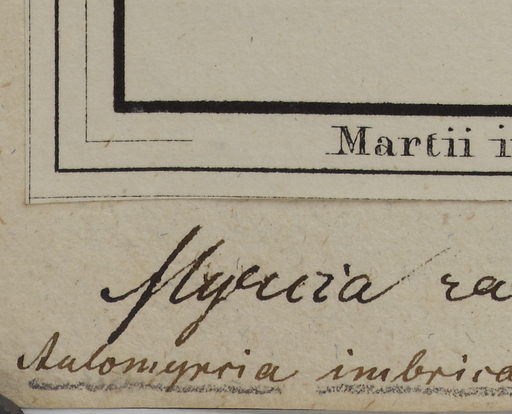 Martii i
Myrcia ra
Aulomyrcia imbrica